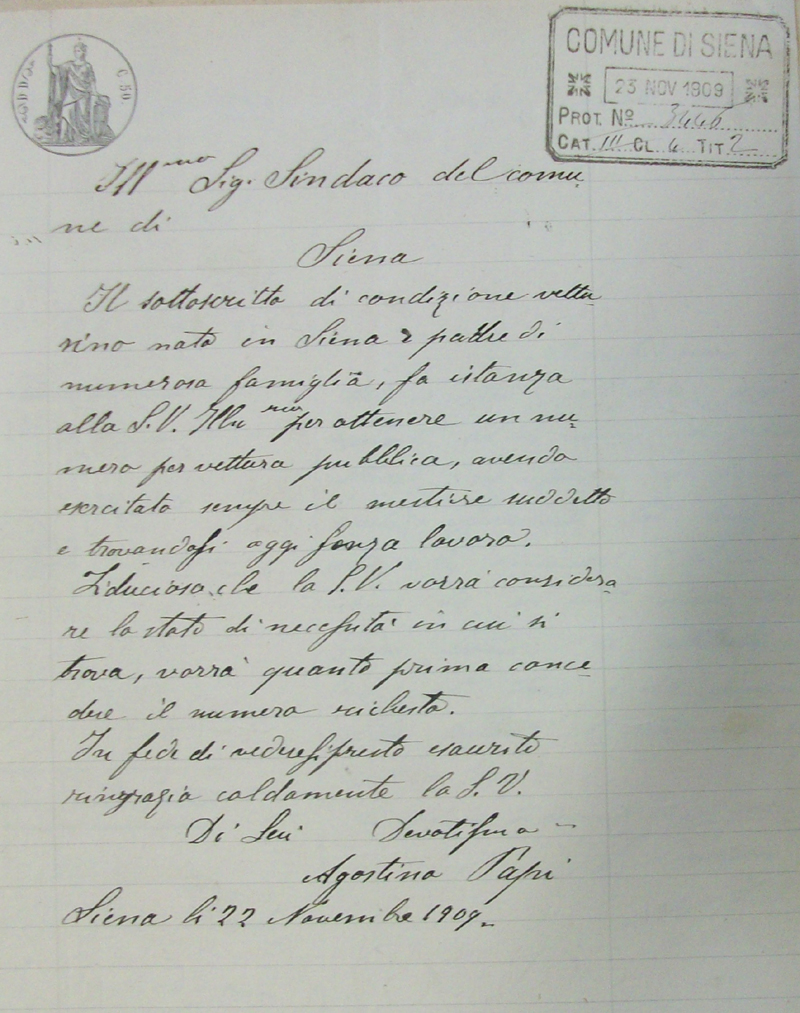 C. 50
COMUNE DI SIENA
23 NOV 1909
PROT. Nº 3446
CAT. III CL. 6 TIT 2
Ill.mo Sig. Sindaco del comu-
ne di
Siena
Il sottoscritto di condizione vettu-
rino nato in Siena e padre di
numerosa famiglia, fa istanza
alla S.V. Illu.ma per ottenere un nu-
mero per vettura pubblica, avendo
esercitato sempre il mestiere suddetto
e trovandosi oggi senza lavoro.
Fiducioso che la S.V. vorrà considera-
re lo stato di necessità in cui si
trova, vorrà quanto prima conce-
dere il numero richiesto.
In fede di vedersi presto esaurito
ringrazia caldamente la S.V.
Di Lei Devotissimo
Agostino Papi
Siena li 22 Novembre 1909.